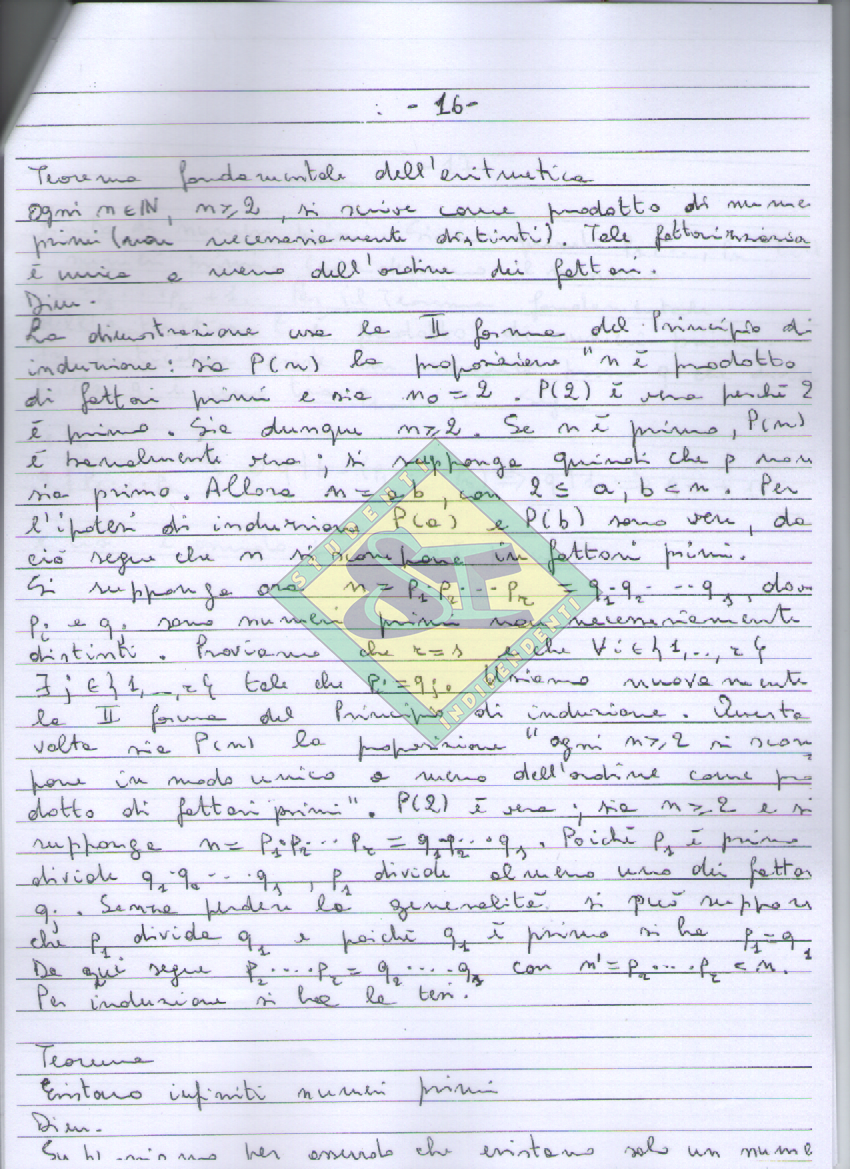 : - 16 -
Teorema fondamentale dell'aritmetica
Ogni n ∈ ℕ, n ⩾ 2, si scrive come prodotto di nume
primi (non necessariamente distinti). Tale fattorizzazio
è unica a meno dell'ordine dei fattori.
Dim.
La dimostrazione usa la II forma del Principio di
induzione: sia P(n) la proposizione "n è prodotto
di fattori primi e sia n₀ = 2. P(2) è vera perché 2
è primo. Sia dunque n ⩾ 2. Se n è primo, P(n)
è banalmente vera; si supponga quindi che p non
sia primo. Allora n = a b, con 2 ≤ a, b < n. Per
l'ipotesi di induzione P(a) e P(b) sono vere, da
ciò segue che n si scompone in fattori primi.
Si supponga ora n = p₁ p₂ ... pᵣ = q₁·q₂ · ··· qₛ, dove
pᵢ e qⱼ sono numeri primi non necessariamente
distinti. Proviamo che r = s e che ∀ i ∈ {1, .., r}
∃ j ∈ {1, .., r} tale che pᵢ = qⱼ. Usiamo nuovamente
la II forma del Principio di induzione. Questa
volta sia P(n) la proposizione "ogni n ⩾ 2 si scom
pone in modo unico a meno dell'ordine come pro
dotto di fattori primi". P(2) è vera; sia n ⩾ 2 e si
supponga n = p₁·p₂ ··· pᵣ = q₁·q₂ ··· qₛ. Poiché p₁ è primo
divide q₁·q₂ ··· qₛ, p₁ divide almeno uno dei fattor
qⱼ. Senza perdere la generalità si può suppore
che p₁ divida q₁ e poiché q₁ è primo si ha p₁ = q₁
Da qui segue p₂ ···· pᵣ = q₂ ···· qₛ con n' = p₂ ··· pᵣ < n.
Per induzione si ha la tesi.
Teorema
Esistono infiniti numeri primi
Dim.
Supponiamo per assurdo che esistano solo un nume
STUDENTI
SI
INDIPENDENTI